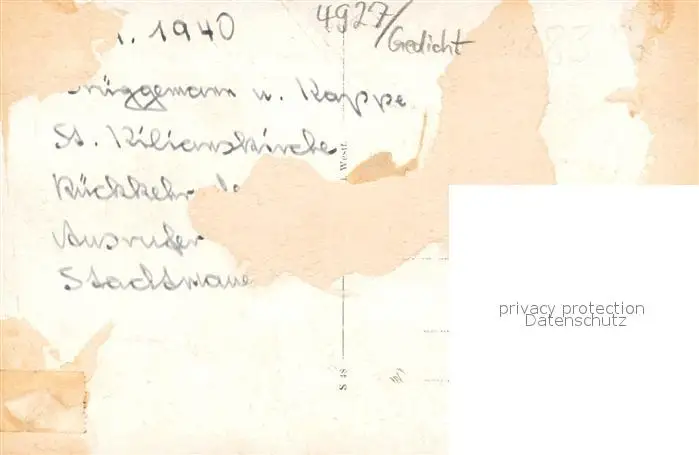 1940
4927/
Gedicht
Brüggemann u. Kappe
St. Kilianskirche
Rückkehr
Ausrufer
Stadtmaue
i. Westf.
S 48
privacy protection
Datenschutz